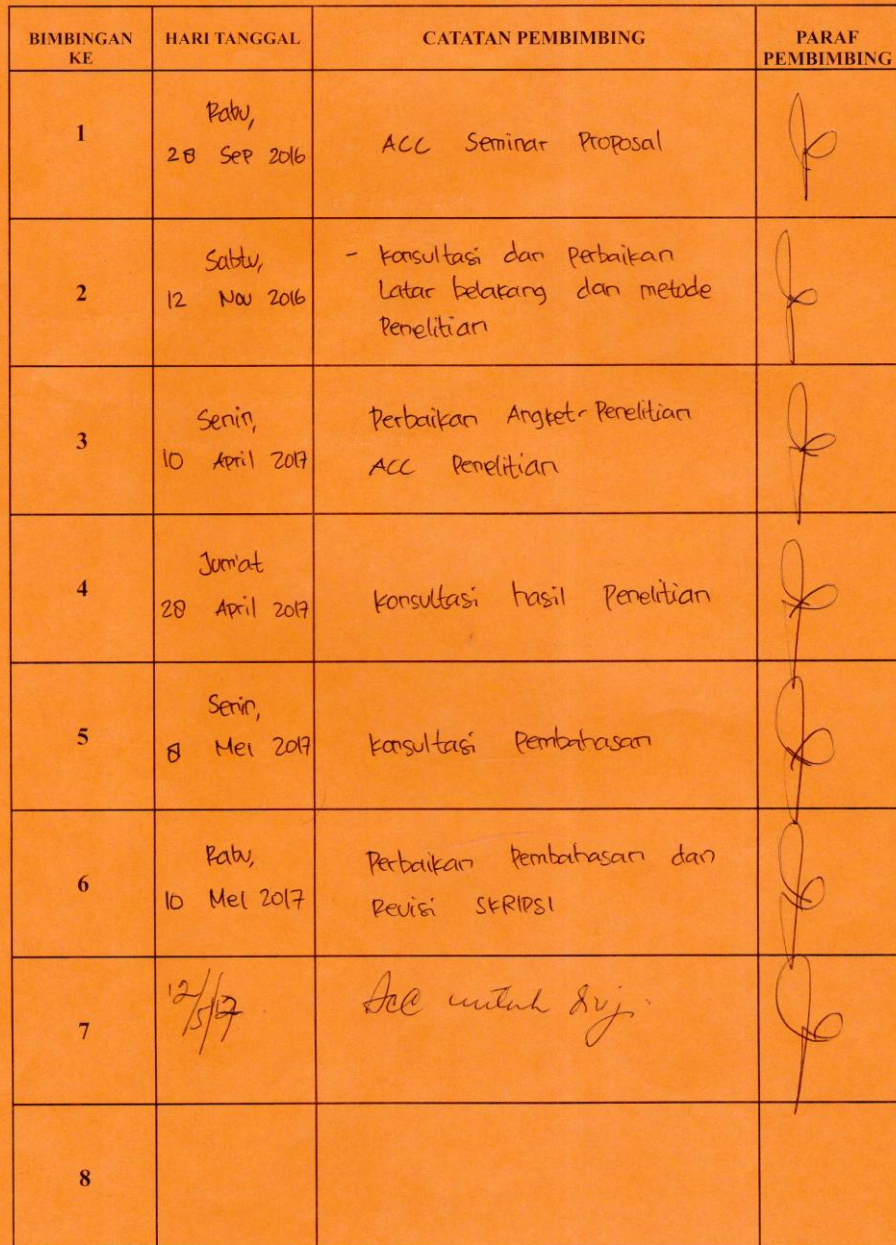 BIMBINGAN KE
HARI TANGGAL
CATATAN PEMBIMBING
PARAF PEMBIMBING
1
Rabu,
28 Sep 2016
ACC Seminar Proposal
2
Sabtu,
12 Nov 2016
- Konsultasi dan Perbaikan
Latar belakang dan metode
Penelitian
3
Senin,
10 April 2017
Perbaikan Angket Penelitian
ACC Penelitian
4
Jum'at
28 April 2017
Konsultasi hasil Penelitian
5
Senin,
8 Mei 2017
Konsultasi Pembahasan
6
Rabu,
10 Mei 2017
Perbaikan Pembahasan dan
Revisi SKRIPSI
7
12/5/17
Acc untuk diuji.
8